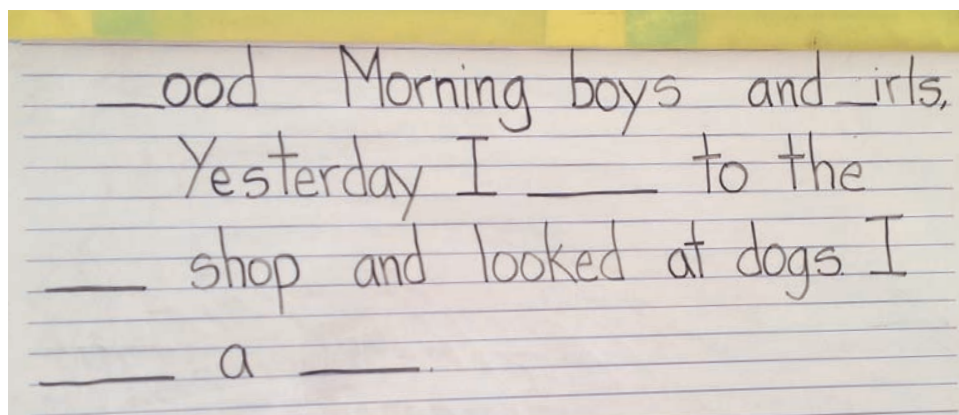 _ood Morning boys and _irls,
Yesterday I ____ to the
____ shop and looked at dogs. I
____ a ____.